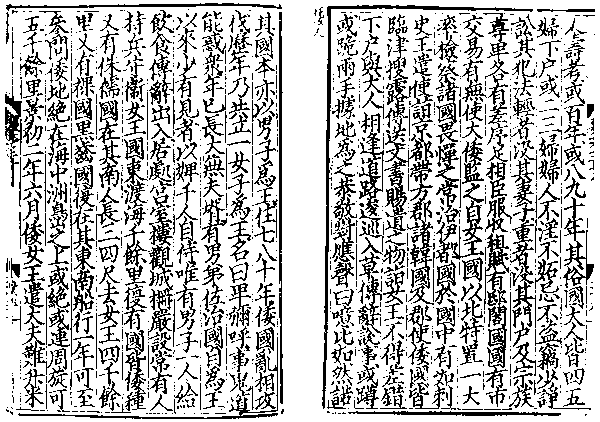 人壽考或百年或八九十年其俗國大人皆四五
婦下戶或二三婦婦人不淫不妬忌不盗竊少諍
訟其犯法輕者没其妻子重者没其門戶及宗族
尊卑各有差序足相臣服收租賦有邸閣國國有市
交易有無使大倭監之自女王國以北特置一大
率檢察諸國畏憚之常治伊都國於國中有如刺
史王遣使詣京都帶方郡諸韓國及郡使倭國皆
臨津搜露傳送文書賜遺之物詣女王不得差錯
下戶與大人相逢道路逡巡入草傳辭說事或蹲
或跪兩手據地為之恭敬對應聲曰噫比如然諾
其國本亦以男子為王住七八十年倭國亂相攻
伐歷年乃共立一女子為王名曰卑彌呼事鬼道
能惑衆年已長大無夫壻有男弟佐治國自為王
以來少有見者以婢千人自侍唯有男子一人給
飲食傳辭出入居處宮室樓觀城柵嚴設常有人
持兵守衛女王國東渡海千餘里復有國皆倭種
又有侏儒國在其南人長三四尺去女王四千餘
里又有裸國黑齒國復在其東南船行一年可至
參問倭地絶在海中洲㠀之上或絶或連周旋可
五千餘里景初二年六月倭女王遣大夫難升米